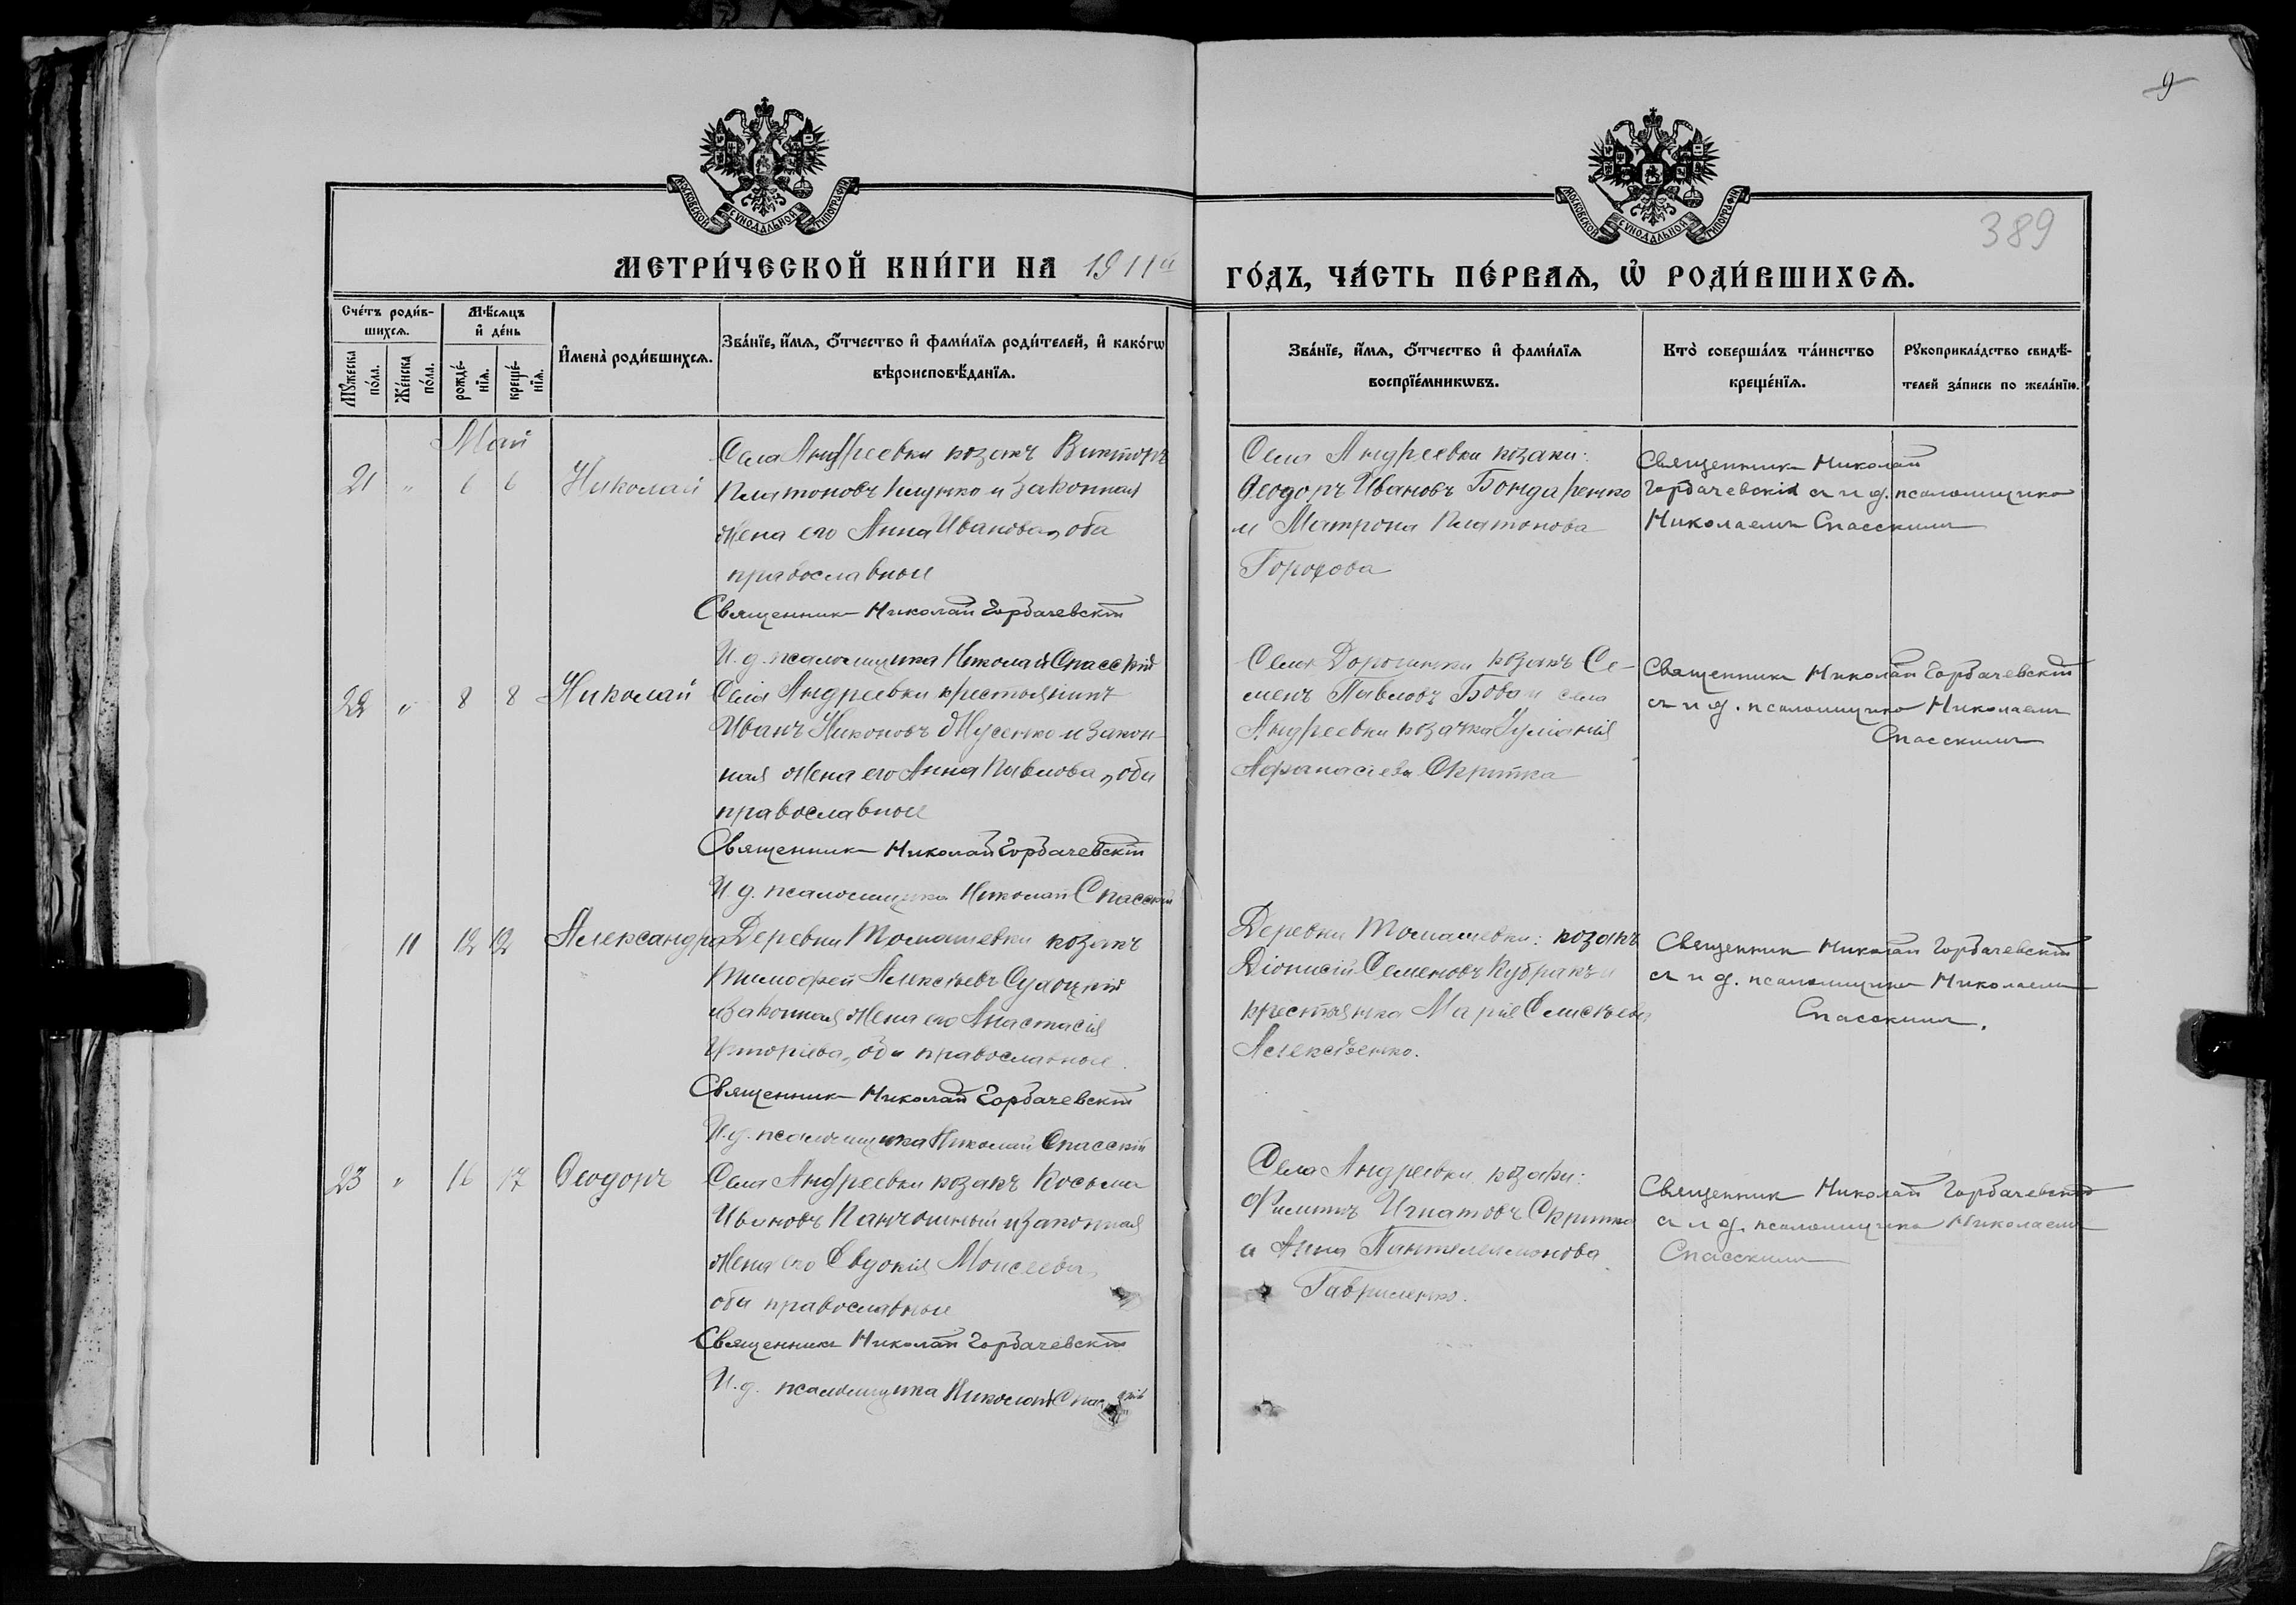 9
МОСКОВСКОЙ СѴНОДАЛЬНОЙ ТИПОГРАФІИ
МОСКОВСКОЙ СѴНОДАЛЬНОЙ ТИПОГРАФІИ
389
МЕТРИ́ЧЕСКОЙ КНИ́ГИ НА 1911й
ГО́ДЪ, ЧА́СТЬ ПЕ́РВАѦ, Ѡ҆ РОДИ́ВШИХСѦ.
Сче́тъ роди́в-
шихсѧ.
Мꙋжеска по́ла.
Же́нска по́ла.
Мѣ́сѧцъ
и҆ де́нь
рожде́-
нїѧ.
креще́-
нїѧ.
И҆мена̀ роди́вшихсѧ.
Зва́нїе, и҆́мѧ, ѻ҆́тчество и҆ фами́лїѧ роди́телей, и҆ како́гѡ
вѣроисповѣ́данїѧ.
Зва́нїе, и҆́мѧ, ѻ҆́тчество и҆ фами́лїѧ
воспрїе́мникѡвъ.
Кто̀ соверша́лъ та́инство
креще́нїѧ.
Рꙋкоприкла́дство свидѣ́-
телей за́писи по жела́нїю.
Май
21 " 6 6 Николай
Села Андреевки козакъ Викторъ
Платоновъ и законная
жена его Анна Иванова, оба
православные
Священникъ Николай Горбачевскій
И. д. псаломщика Николай Спасскій
Села Андреевки козаки:
Ѳеодоръ Ивановъ Бондаренко
и Матрона Платонова
Горохова
Священникъ Николай
Горбачевскій съ и д. псаломщика
Николаемъ Спасскимъ
22 " 8 8 Николай
Села Андреевки крестьянинъ
Иванъ Никоновъ Мусенко и закон
ная жена его Анна Павлова, оба
православные
Священникъ Николай Горбачевскій
И. д. псаломщика Николай Спасскій
Села Дорогинки козакъ Се-
менъ Павловъ Бова и села
Андреевки козачка Іуліанія
Аѳанасіева Скрипка
Священникъ Николай Горбачевскій
съ и д. псаломщика Николаемъ
Спасскимъ
11 12 12 Александра
Деревни Томашевки козакъ
Тимофей Алексѣевъ
и законная жена его Анастасія
Григоріева, оба православные.
Священникъ Николай Горбачевскій
И. д. псаломщика Николай Спасскій
Деревни Томашевки: козакъ
Діонисій Семеновъ Кубракъ и
крестьянка Марія
Алексѣенко.
Священникъ Николай Горбачевскій
съ и д. псаломщика Николаемъ
Спасскимъ.
23 " 16 17 Ѳеодоръ
Села Андреевки козакъ Косьма
Ивановъ и законная
жена его Евдокія Моисеева,
оба православные
Священникъ Николай Горбачевскій
И. д. псаломщика Николай Спасскій
Села Андреевки козаки:
Филиппъ Игнатовъ Скрипка
и Анна Пантелеимонова
Гавриленко.
Священникъ Николай Горбачевскій
съ и д. псаломщика Николаемъ
Спасскимъ